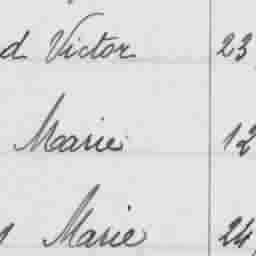 d Victor 23
Marie 12
s Marie 24